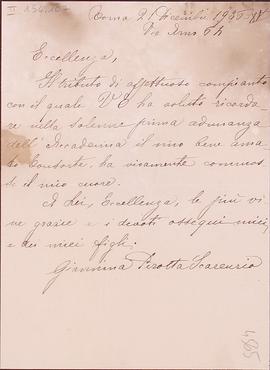 II 154.10
Roma 21 Dicembre 1936-XV
Via Arno 64
Eccellenza,
Il tributo di affettuoso compianto
con il quale V. E. ha voluto ricorda
re nella solenne prima adunanza
dell'Accademia il mio bene ama
to Consorte, ha vivamente commos
so il mio cuore.
A Lei, Eccellenza, le più vi
ve grazie e i devoti ossequi miei
e dei miei figli.
Giannina Pirotta Scarenzio